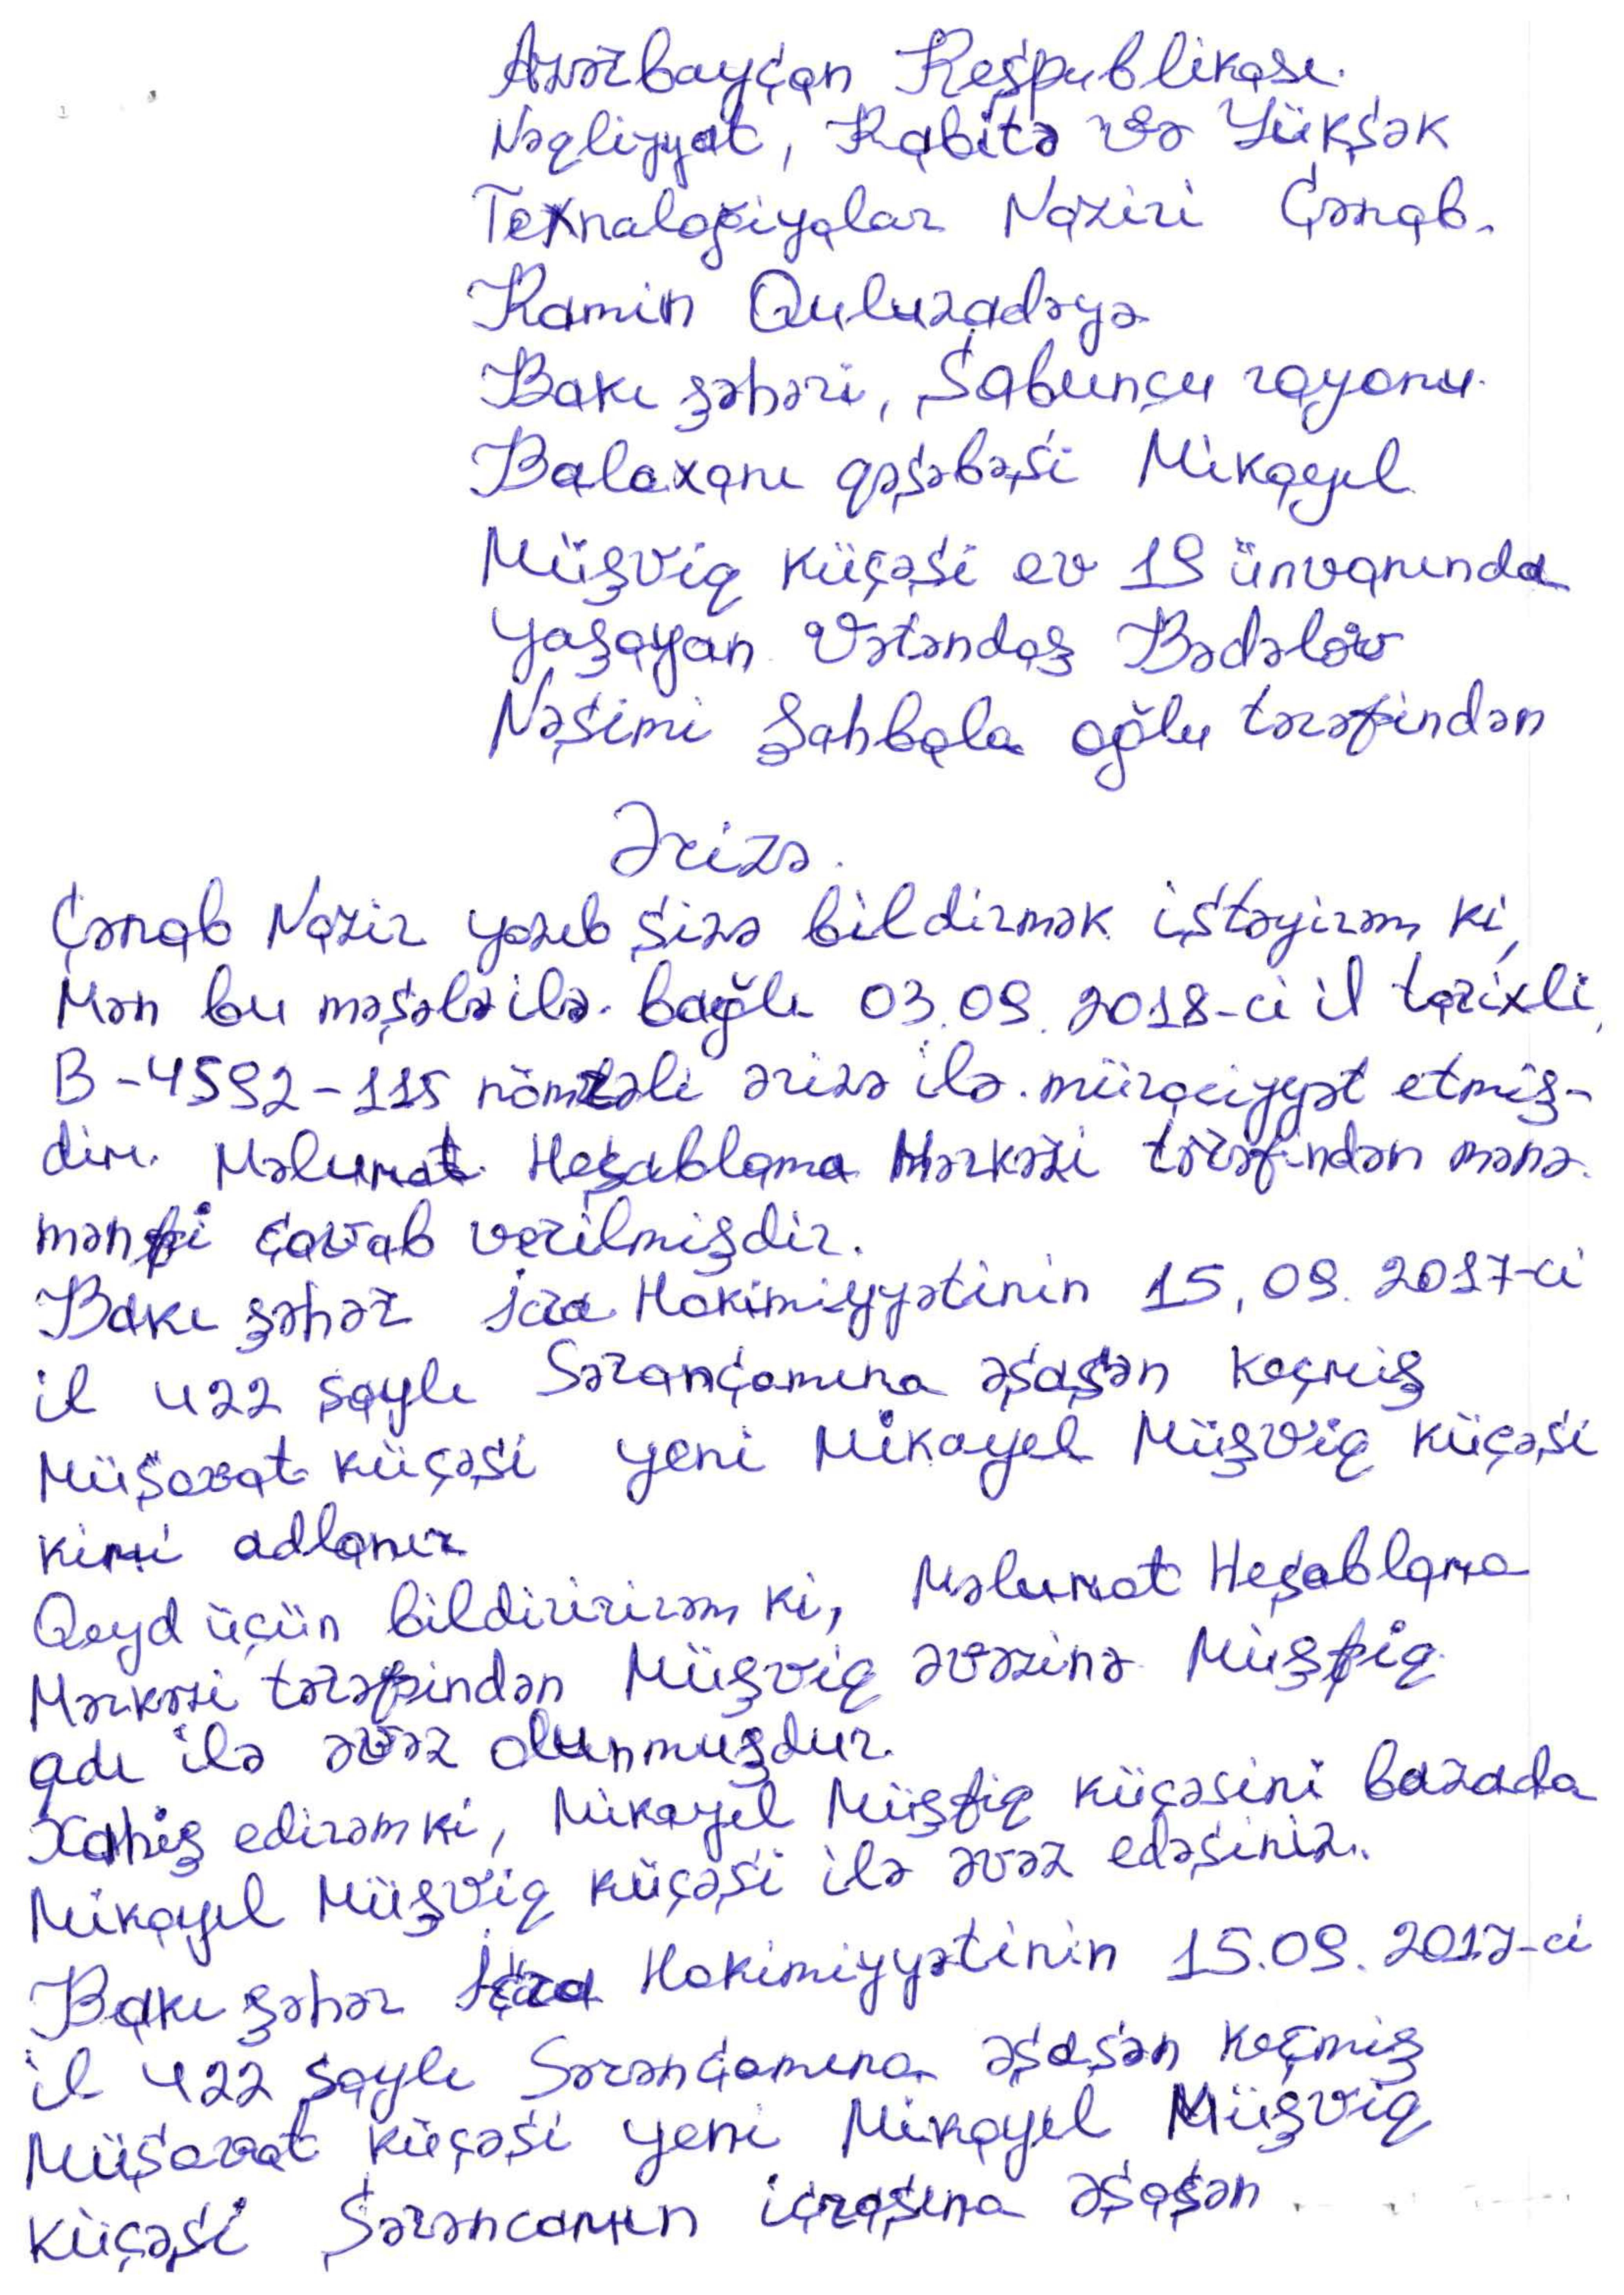 Azərbaycan Respublikası
Nəqliyyat, Rabitə və Yüksək
Texnalogiyalar Naziri Cənab.
Ramin Quluzadəyə
Bakı şəhəri, Sabunçu rayonu
Balaxanı qəsəbəsi Mikayıl
Müşviq küçəsi ev 19 ünvanında
Yaşayan Vətəndaş Bədəlov
Nəsimi Şahbala oğlu tərəfindən
Ərizə.
Cənab Nazir yazıb sizə bildirmək istəyirəm ki,
Mən bu məsələ ilə bağlı 03.09.2018-ci il tarixli,
B-4592-115 nömrəli ərizə ilə müraciyyət etmiş-
dim. Məlumat Hesablama Mərkəzi tərəfindən mənə
mənfi cavab verilmişdir.
Bakı şəhər İcra Hakimiyyətinin 15.09.2017-ci
il 422 saylı Sərancamına əsasən keçmiş
Müsavat küçəsi yeni Mikayıl Müşviq küçəsi
kimi adlanır
Qeyd üçün bildiririrəm ki, Məlumat Hesablama
Mərkəzi tərəfindən Müşviq əvəzinə Müşfiq
adı ilə əvəz olunmuşdur.
Xahiş edirəm ki, Mikayıl Müşfiq küçəsini bazada
Mikayıl Müşviq küçəsi ilə əvəz edəsiniz.
Bakı şəhər İcra Hakimiyyətinin 15.09.2017-ci
il 422 saylı Sərəncamına əsasən keçmiş
Müsavat küçəsi yeni Mikayıl Müşviq
küçəsi Sərəncamın icrasına əsasən